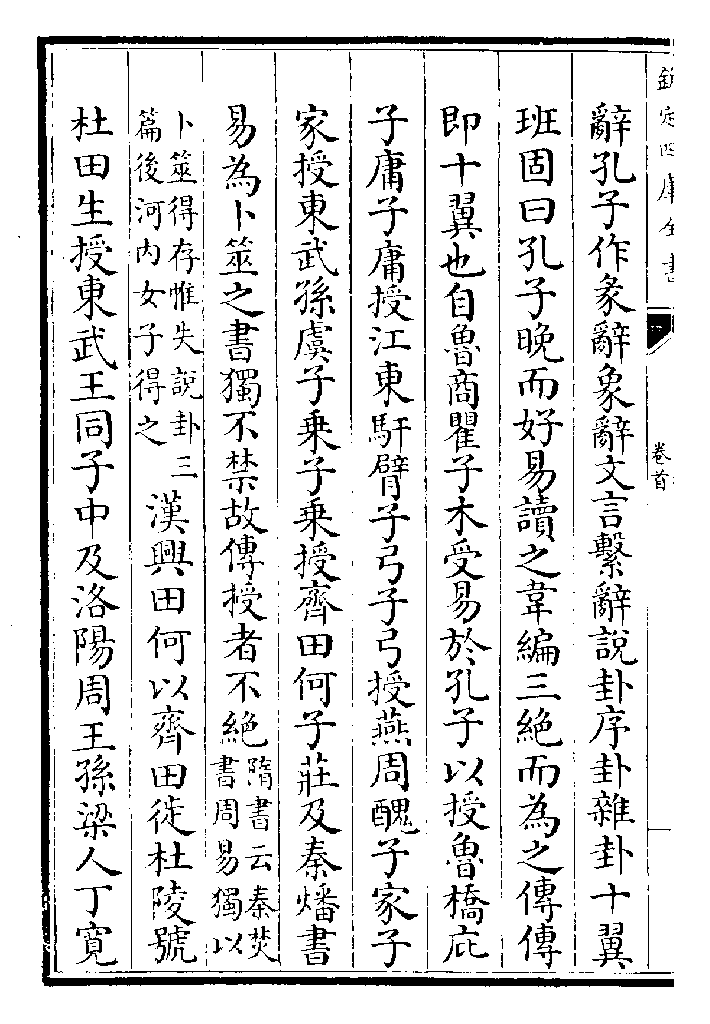 欽定四庫全書
卷首
辭孔子作彖辭象辭文言繫辭說卦序卦雜卦十翼
班固曰孔子晚而好易讀之韋編三絕而為之傳傳
即十翼也自魯商瞿子木受易於孔子以授魯橋庇
子庸子庸授江東馯臂子弓子弓授燕周醜子家子
家授東武孫虞子乗子乗授齊田何子莊及秦燔書
易為卜筮之書獨不禁故傳授者不絕
隋書云秦焚
書周易獨以
卜筮得存惟失說卦三
篇後河内女子得之
漢興田何以齊田徙杜陵號
杜田生授東武王同子中及洛陽周王孫梁人丁寛